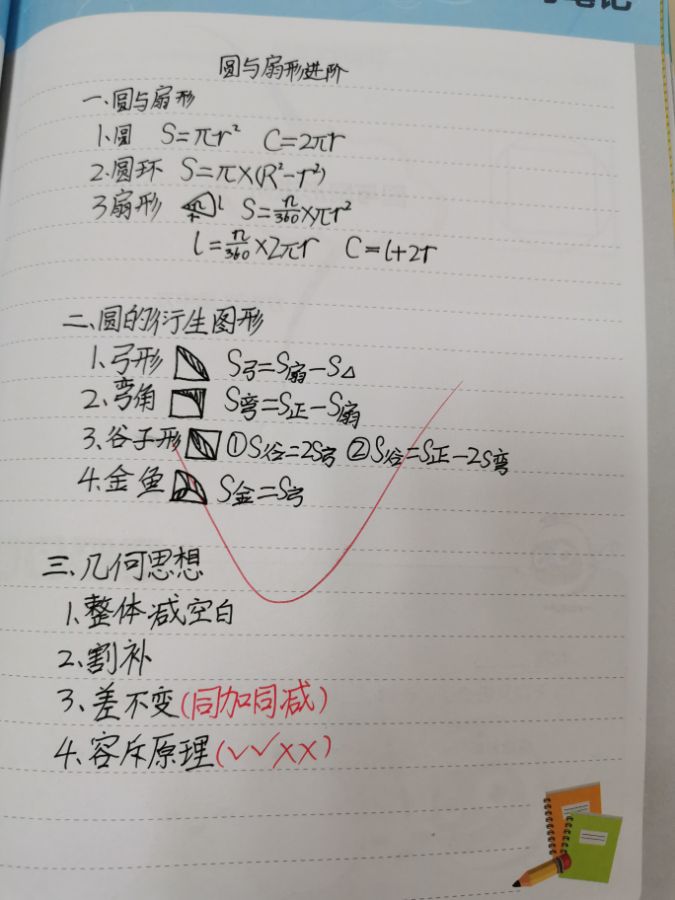 笔记
圆与扇形进阶
一、圆与扇形
1.圆 S=πr² C=2πr
2.圆环 S=π×(R²-r²)
3扇形 n r l S=n/360×πr²
l=n/360×2πr C=l+2r
二、圆的衍生图形
1.弓形 S弓=S扇-S△
2.弯角 S弯=S正-S扇
3.谷子形 ①S谷=2S弓 ②S谷=S正-2S弯
4.金鱼 S金=S弓
三、几何思想
1.整体减空白
2.割补
3.差不变(同加同减)
4.容斥原理(√√××)